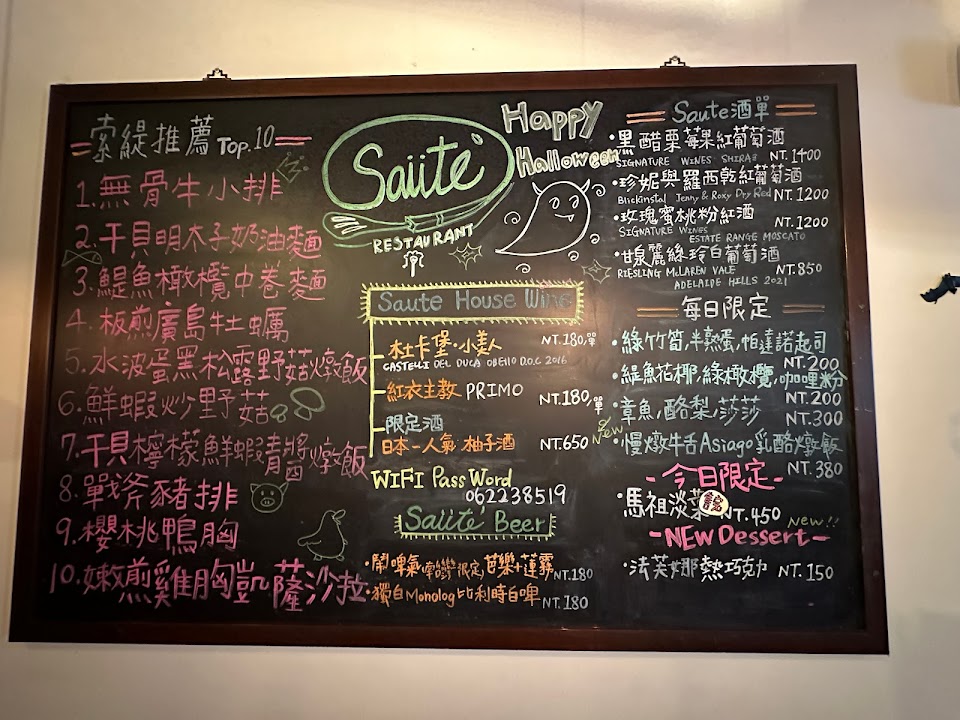 索緹推薦 Top.10
1.無骨牛小排
2.干貝明太子奶油麵
3.鯷魚橄欖中卷麵
4.板煎廣島牡蠣
5.水波蛋黑松露野菇燉飯
6.鮮蝦炒野菇
7.干貝檸檬鮮蝦青醬燉飯
8.戰斧豬排
9.櫻桃鴨胸
10.嫩煎雞胸凱薩沙拉
Saüte
RESTAURANT
Happy
Halloween
Saute House Wine
木卡堡·小美人 NT.180/單
CASTELLI DEL DUCA D.O.C 2016
紅衣主教 PRIMO NT.180/單
限定酒
日本一人氣 柚子酒 NT.650
WIFI Pass Word
062238519
Saüte Beer
·鬧啤氣 限定,芭樂+蓮霧 NT.180
·獨白Monolog比利時白啤 NT.180
Saute酒單
·黑醋栗莓果紅葡萄酒
SIGNATURE WINES SHIRAZ NT.1400
·珍妮與羅西乾紅葡萄酒
Blickinstal Jenny & Roxy Dry Red NT.1200
·玫瑰蜜桃粉紅酒
SIGNATURE WINES NT.1200
ESTATE RANGE MOSCATO
·甘泉麗絲玲白葡萄酒
RIESLING McLAREN VALE NT.850
ADELAIDE HILLS 2021
每日限定
·綠竹筍,半熟蛋,帕達諾起司
NT.200
·緹魚花椰,綠橄欖,咖哩粉
NT.200
·章魚,酪梨,莎莎 NT.300
New
·慢燉牛舌Asiago乳酪燉飯
NT.380
-今日限定-
·馬祖淡菜 NT.450
New!!
-NEW Dessert-
·法芙娜熱巧克力 NT.150